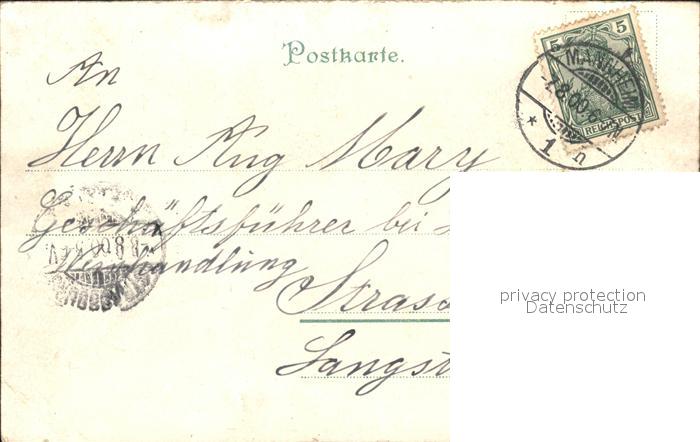 Postkarte.
5 5
REICHSPOST
MANNHEIM
8.00.
* 1 n
An
Herrn Aug Mary
Geschäftsführer bei
Weinhandlung
8.8.00.
Strass
Langst
privacy protection
Datenschutz